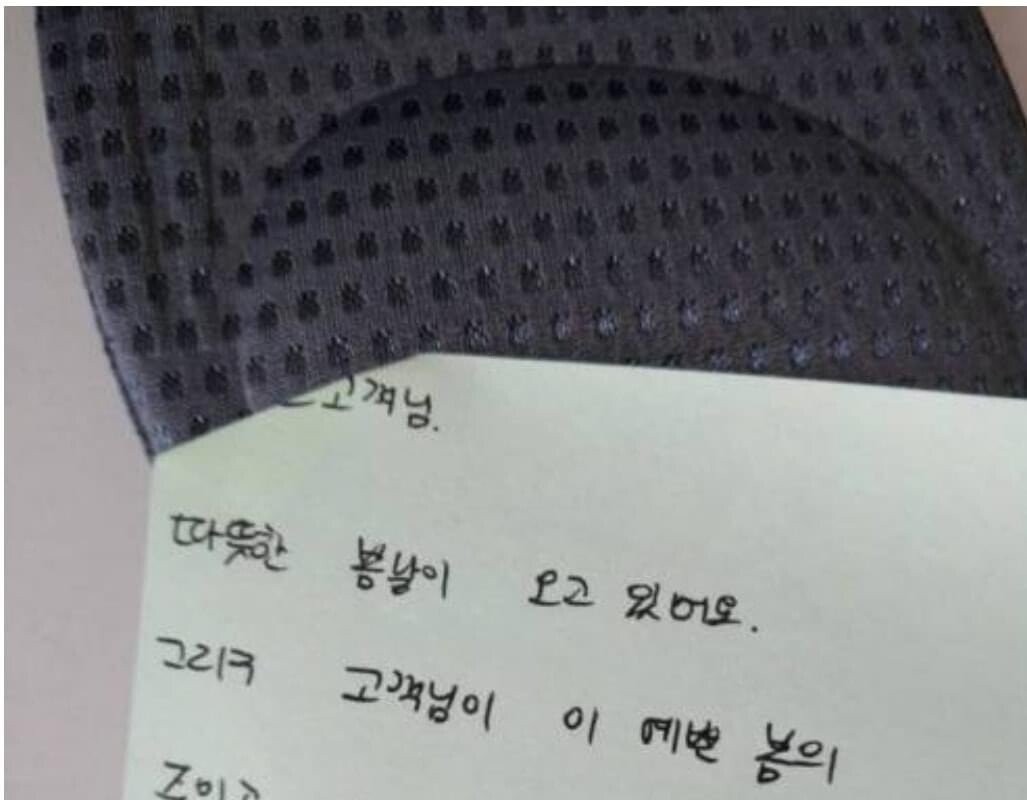 고객님.
따뜻한 봄날이 오고 있어요.
그리구 고객님이 이 예쁜 봄의